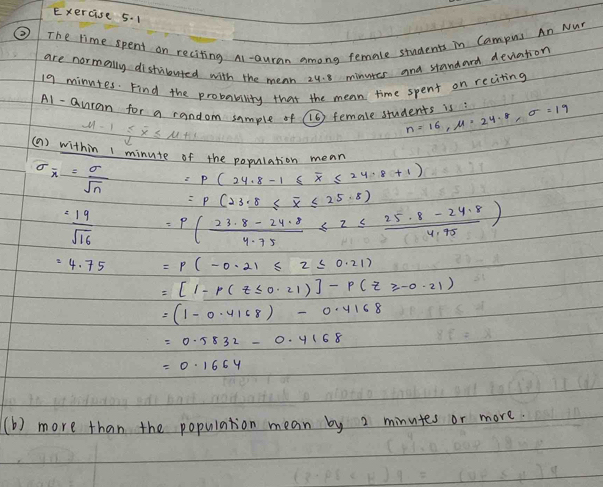 Exercise 5.1
② The time spent on reciting Al-Quran among female students in Campus An Nur
are normally distributed with the mean 24.8 minutes and standard deviation
19 minutes. Find the probability that the mean time spent on reciting
Al-Quran for a random sample of 16 female students is :
μ-1 ≤ x̄ ≤ μ+1
n=16, μ=24.8, σ=19
(a) within 1 minute of the population mean
σx̄ = σ/√n
= P ( 24.8 - 1 ≤ x̄ ≤ 24.8 + 1 )
= P (23.8 ≤ x̄ ≤ 25.8)
= 19/√16
= P ( (23.8 - 24.8)/4.75 ≤ z ≤ (25.8 - 24.8)/4.75 )
= 4.75
= P ( -0.21 ≤ z ≤ 0.21)
= [ 1 - P ( z ≤ 0.21) ] - P ( z ≥ -0.21)
= (1 - 0.4168) - 0.4168
= 0.5832 - 0.4168
= 0.1664
(b) more than the population mean by 2 minutes or more.